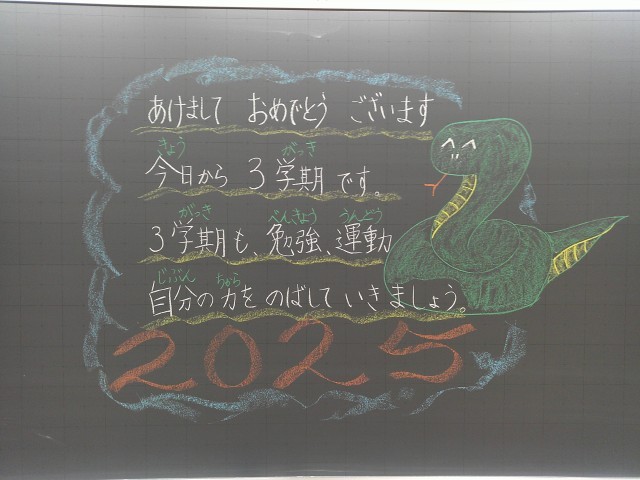 あけまして おめでとう ございます
きょう がっき
今日から 3学期です。
がっき べんきょう うんどう
3学期も、勉強、運動
じぶん ちから
自分の力を のばして いきましょう。
2025